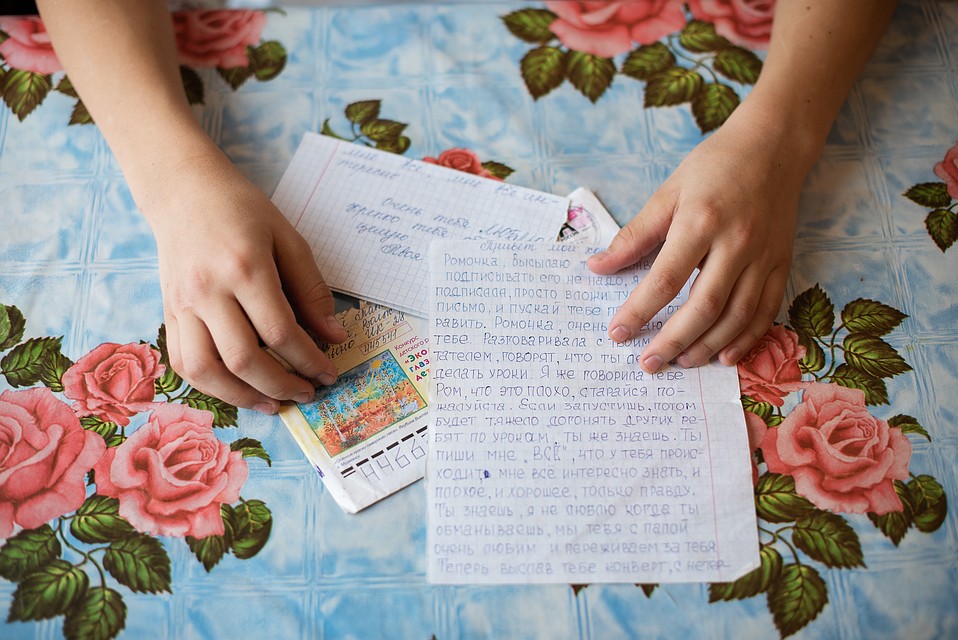 мне всё, мне всё ин-
тересно
Очень тебя люблю
крепко тебя
целую
Твоя
Привет мой
Ромочка, высылаю
подписывать его не надо, я
подписала, просто вложи ту
письмо, и пускай тебе по
равить. Ромочка, очень
тебе. Разговаривала с
тателем, говорят, что ты
делать уроки. Я же говорила тебе
Ром, что это плохо, старайся по-
жалуйста. Если запустишь, потом
будет тяжело догонять других ре-
бят по урокам, ты же знаешь. Ты
пиши мне „ВСЁ", что у тебя проис-
ходит, мне всё интересно знать, и
плохое, и хорошее, только правду.
Ты знаешь, я не люблю когда ты
обманываешь, мы тебя с папой
очень любим и переживаем за тебя.
Теперь выслав тебе конверт, с нетер-
Конкурс
детского р
"ЭКО
ГЛАЗ
ДЕТ